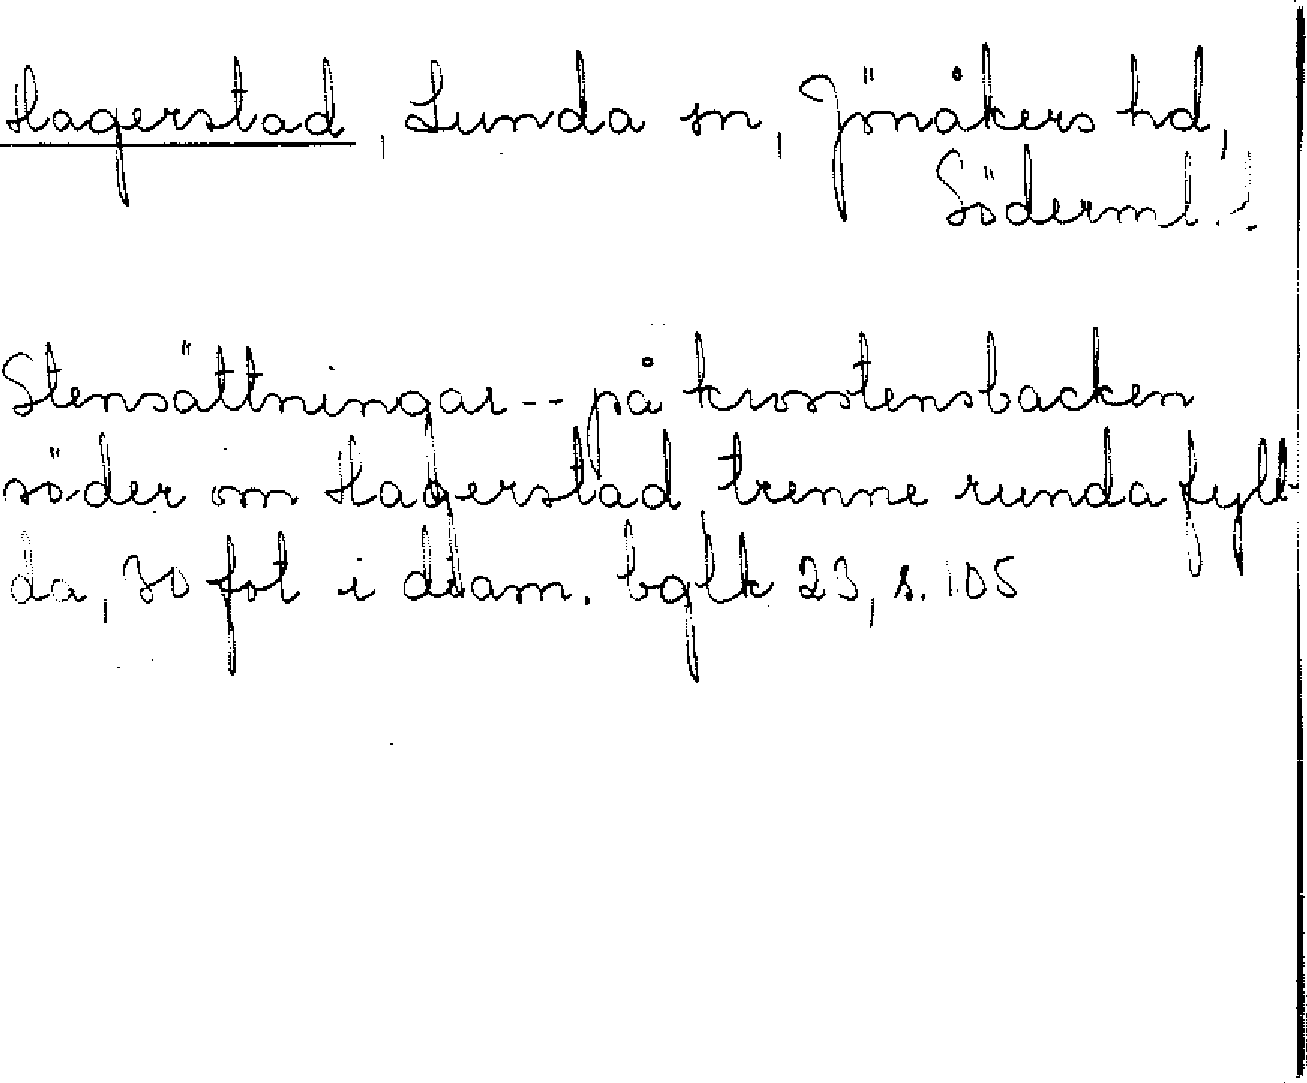 Hagerstad, Lunda sn, Jönåkers hd,
Söderml.
Stensättningar -- på krosstensbacken
söder om Hagerstad trenne runda fyll-
da, 30 fot i diam. bglk 23, s. 105